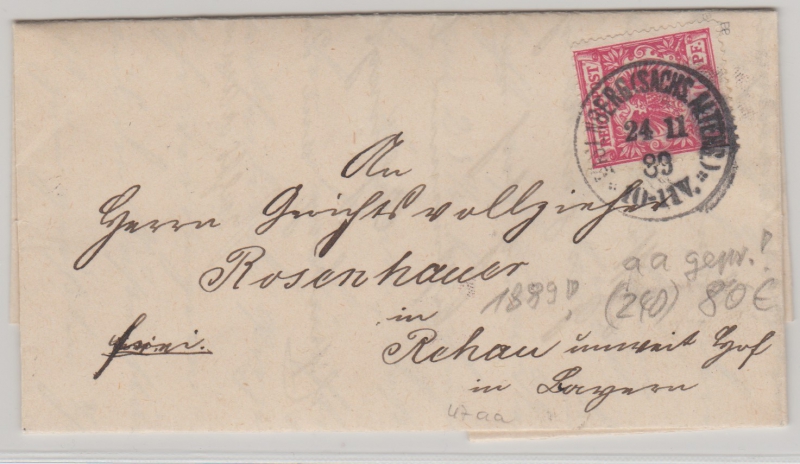 PF.
POST
NBERG (SACHS. ALTENB.)
24 11
89
10-11V.
An
Herrn Gerichtsvollzieher
Rosenhauer
in
Rehau unweit Hof
in Bayern
frei.
1889!
aa gepr.!
(240) 80€
47aa